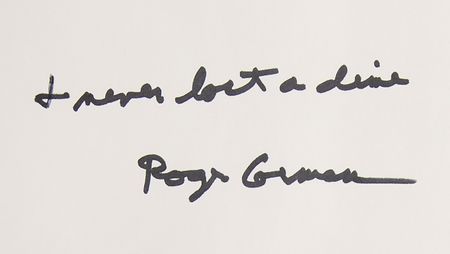 & never lost a dime
Roger Corman